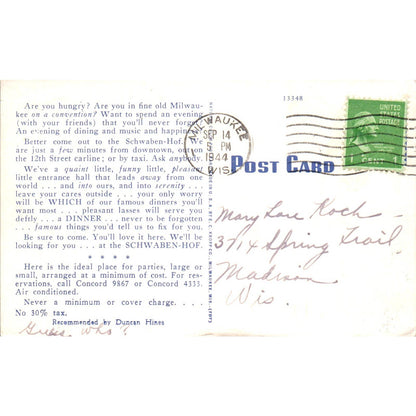 Are you hungry? Are you in fine old Milwau-
kee on a convention? Want to spend an evening
(with your friends) that you'll never forget?
An evening of dining and music and happiness
Better come out to the Schwaben-Hof. We
are just a few minutes from downtown, out on
the 12th Street carline; or by taxi. Ask anybody.
We've a quaint little, funny little, pleasant
little entrance hall that leads away from one
world . . . and into ours, and into serenity . . .
leave your cares outside . . . your only worry
will be WHICH of our famous dinners you'll
want most . . . pleasant lasses will serve you
deftly . . . a DINNER . . . never to be forgotten
. . . famous things you'd tell us to fix for you.
Be sure to come. You'll love it here. We'll be
looking for you . . . at the SCHWABEN-HOF.
* * * *
Here is the ideal place for parties, large or
small, arranged at a minimum of cost. For re-
servations, call Concord 9867 or Concord 4333.
Air conditioned.
Never a minimum or cover charge. . . .
No 30% tax.
Recommended by Duncan Hines
Guess who?
13348
MILWAUKEE
SEP 14
PM
1944
WIS.
UNITED
STATES
POSTAGE
1 CENT 1
POST CARD
Mary Lou Koch
3714 Spring Trail
Madison
Wis.